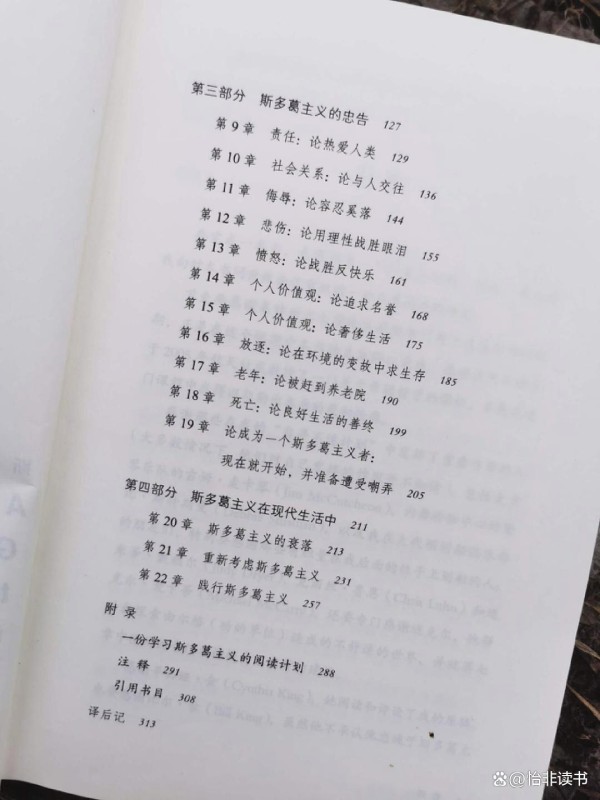 第三部分 斯多葛主义的忠告 127
第9章 责任：论热爱人类 129
第10章 社会关系：论与人交往 136
第11章 侮辱：论容忍奚落 144
第12章 悲伤：论用理性战胜眼泪 155
第13章 愤怒：论战胜反快乐 161
第14章 个人价值观：论追求名誉 168
第15章 个人价值观：论奢侈生活 175
第16章 放逐：论在环境的变故中求生存 185
第17章 老年：论被赶到养老院 190
第18章 死亡：论良好生活的善终 199
第19章 论成为一个斯多葛主义者：
现在就开始，并准备遭受嘲弄 205
第四部分 斯多葛主义在现代生活中 211
第20章 斯多葛主义的衰落 213
第21章 重新考虑斯多葛主义 231
第22章 践行斯多葛主义 257
附录
一份学习斯多葛主义的阅读计划 288
注释 291
引用书目 308
译后记 313
@怡非读书